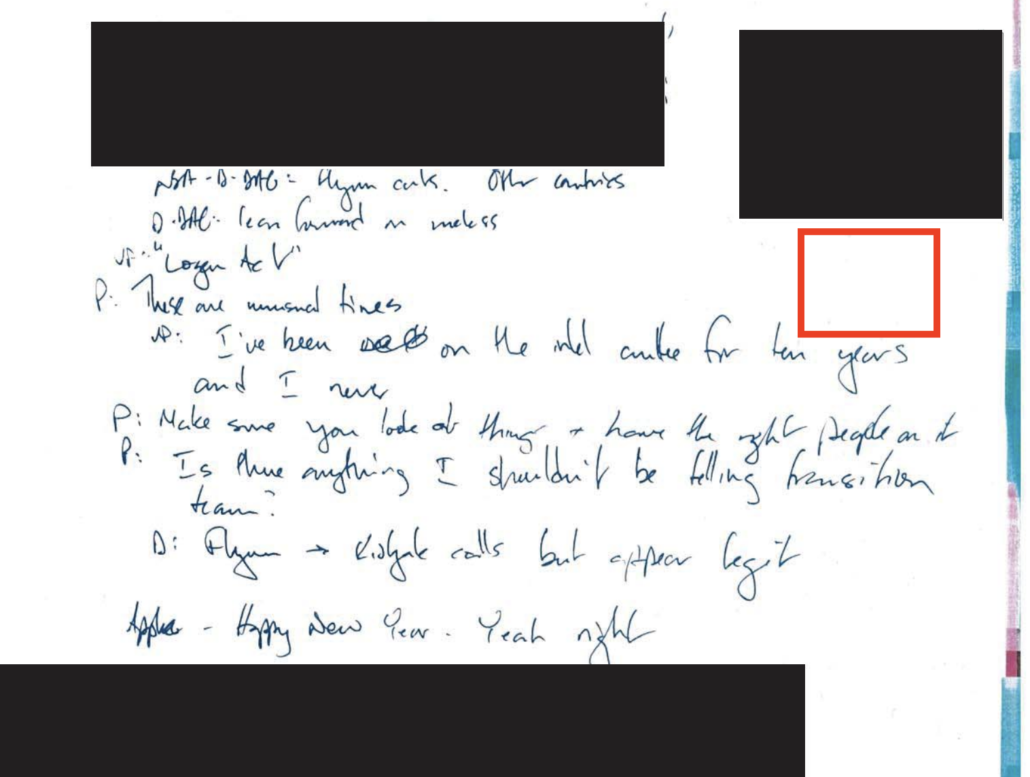 NSA-D-DAG: Flynn cuts. Other countries
D-DAG: lean forward on
VP: "Logan Act"
P: These are unusual times
VP: I've been on the intel cmttee for ten years
and I never
P: Make sure you look at things + have the right people on it
P: Is there anything I shouldn't be telling transition
team?
D: Flynn → Kislyak calls but appear legit
- Happy New Year. Yeah right